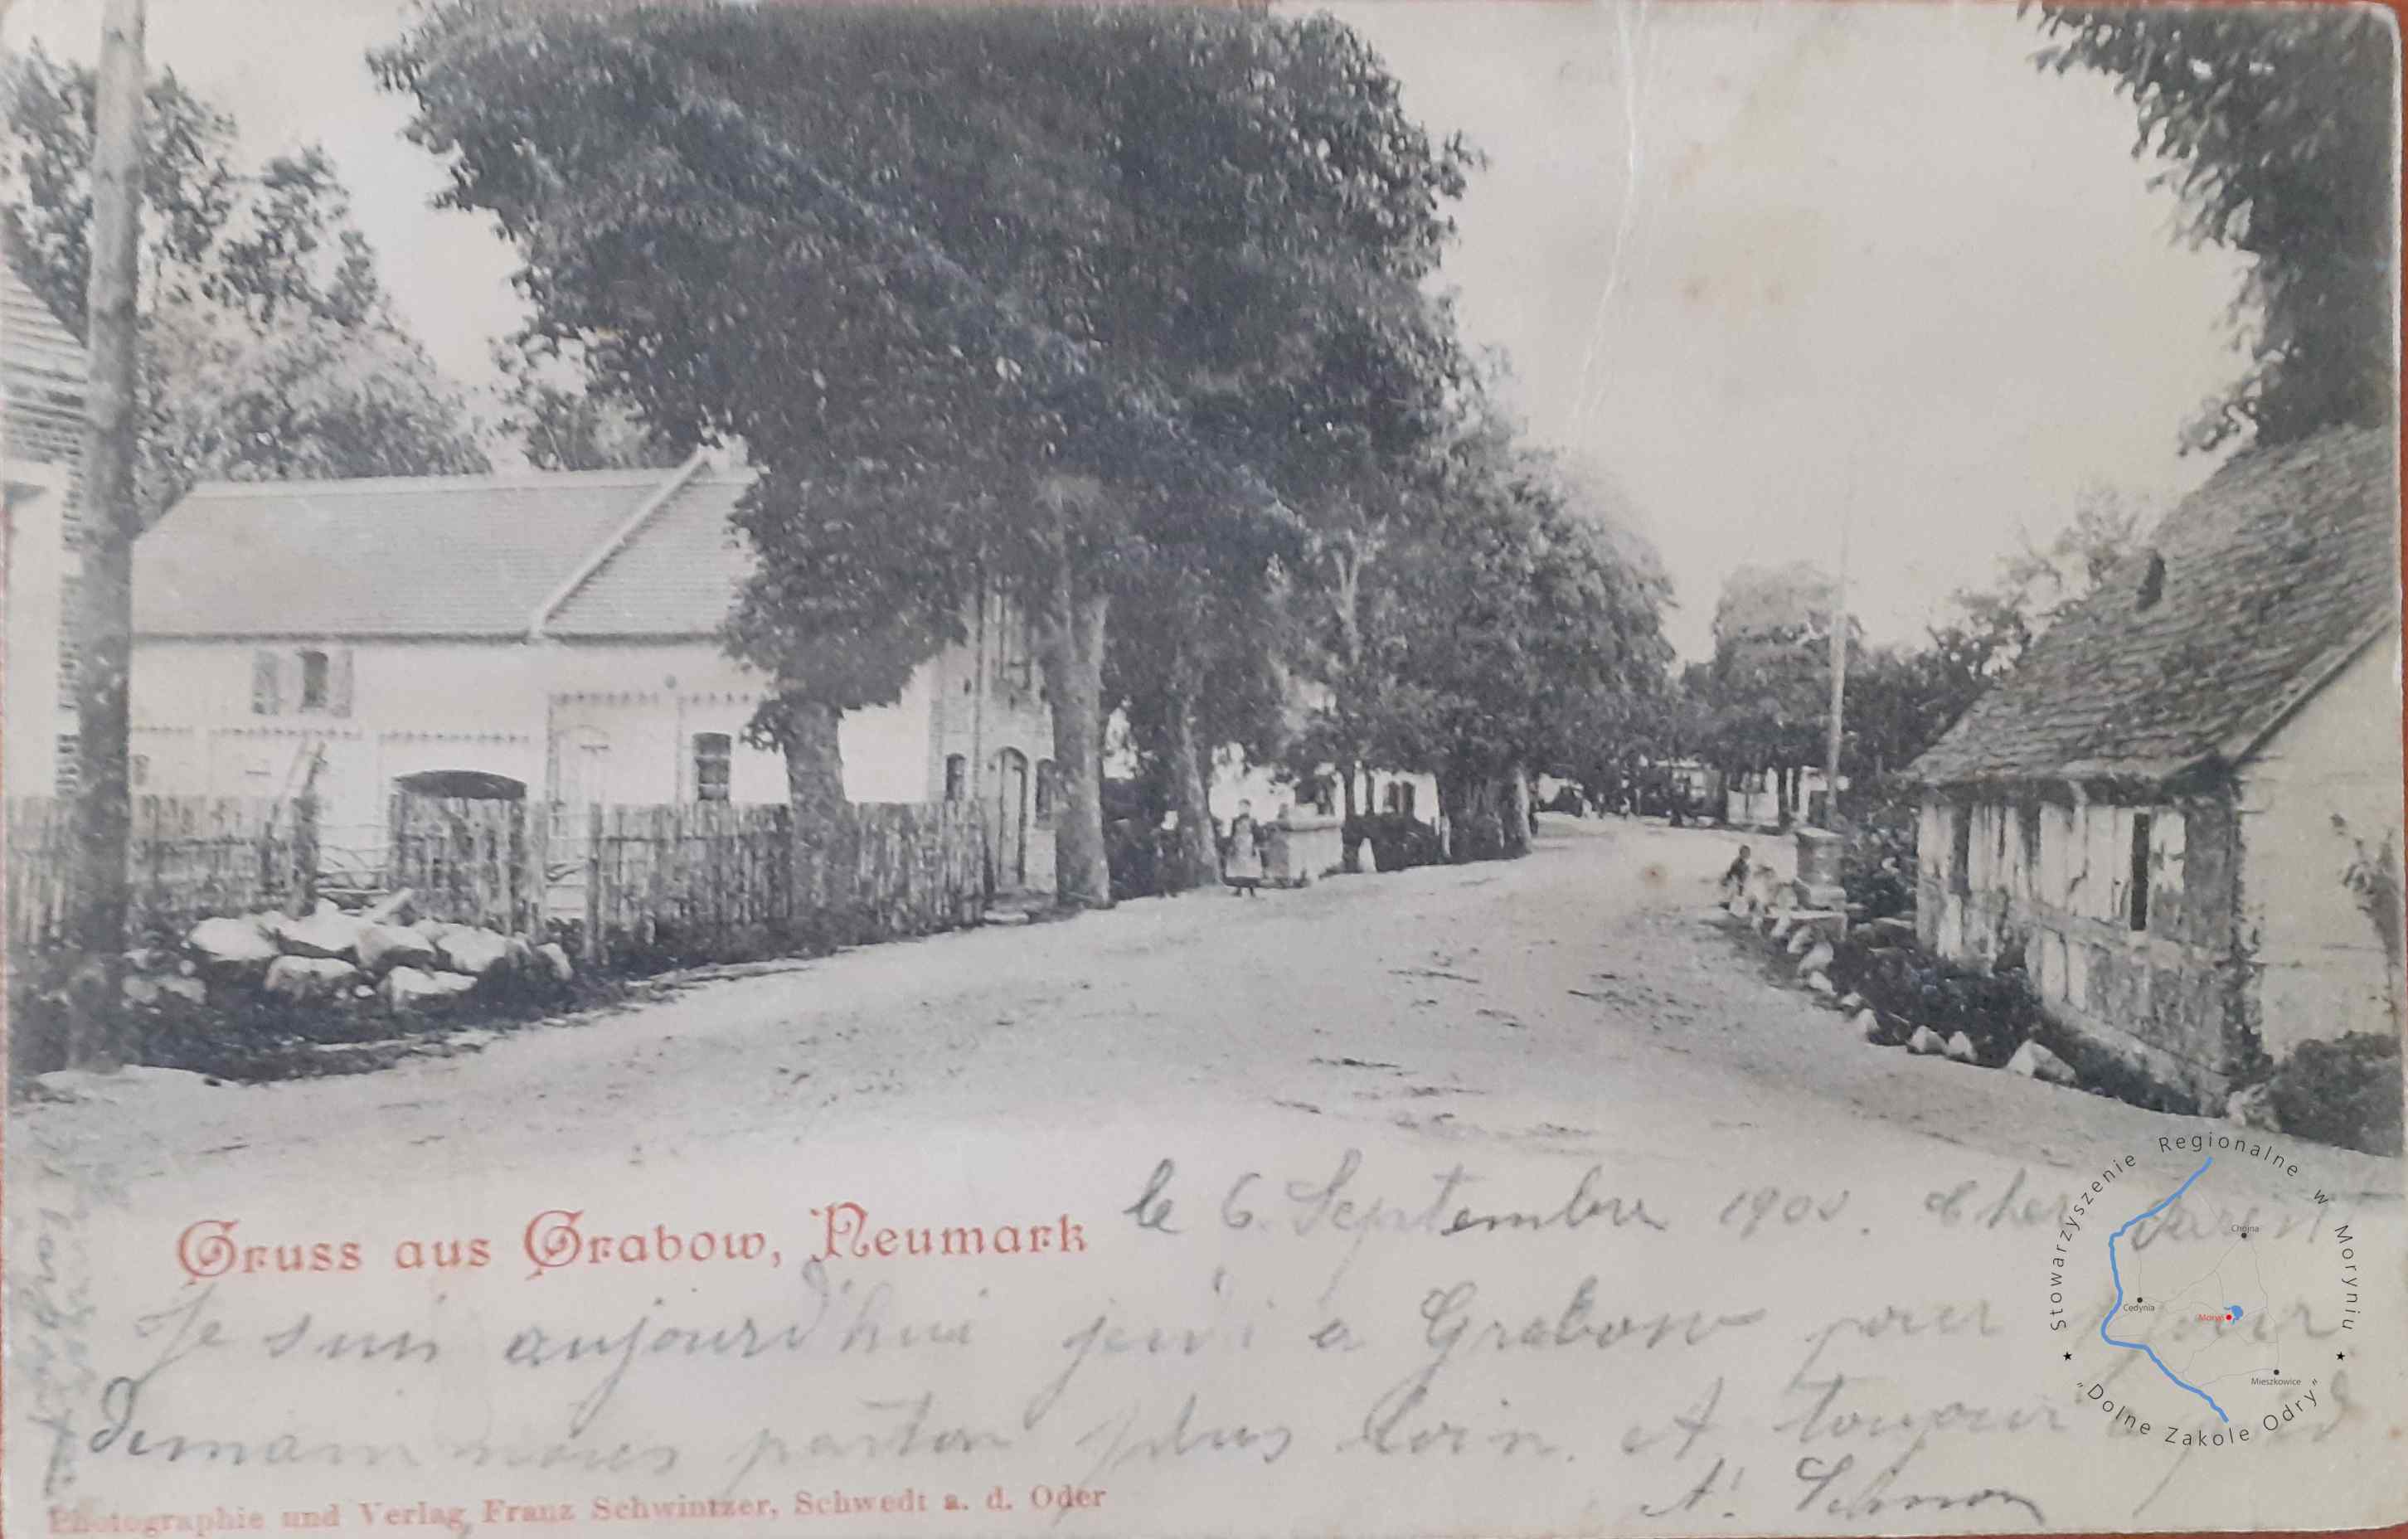 Gruss aus Grabow, Neumark
le 6. Septembre 1900. Cher
Je suis aujourd'hui a Grabow pour
demain nous parton plus loin. A toujour
A.
Photographie und Verlag Franz Schwintzer, Schwedt a. d. Oder
Stowarzyszenie Regionalne w Moryniu
"Dolne Zakole Odry"
Chojna
Cedynia
Moryń
Mieszkowice